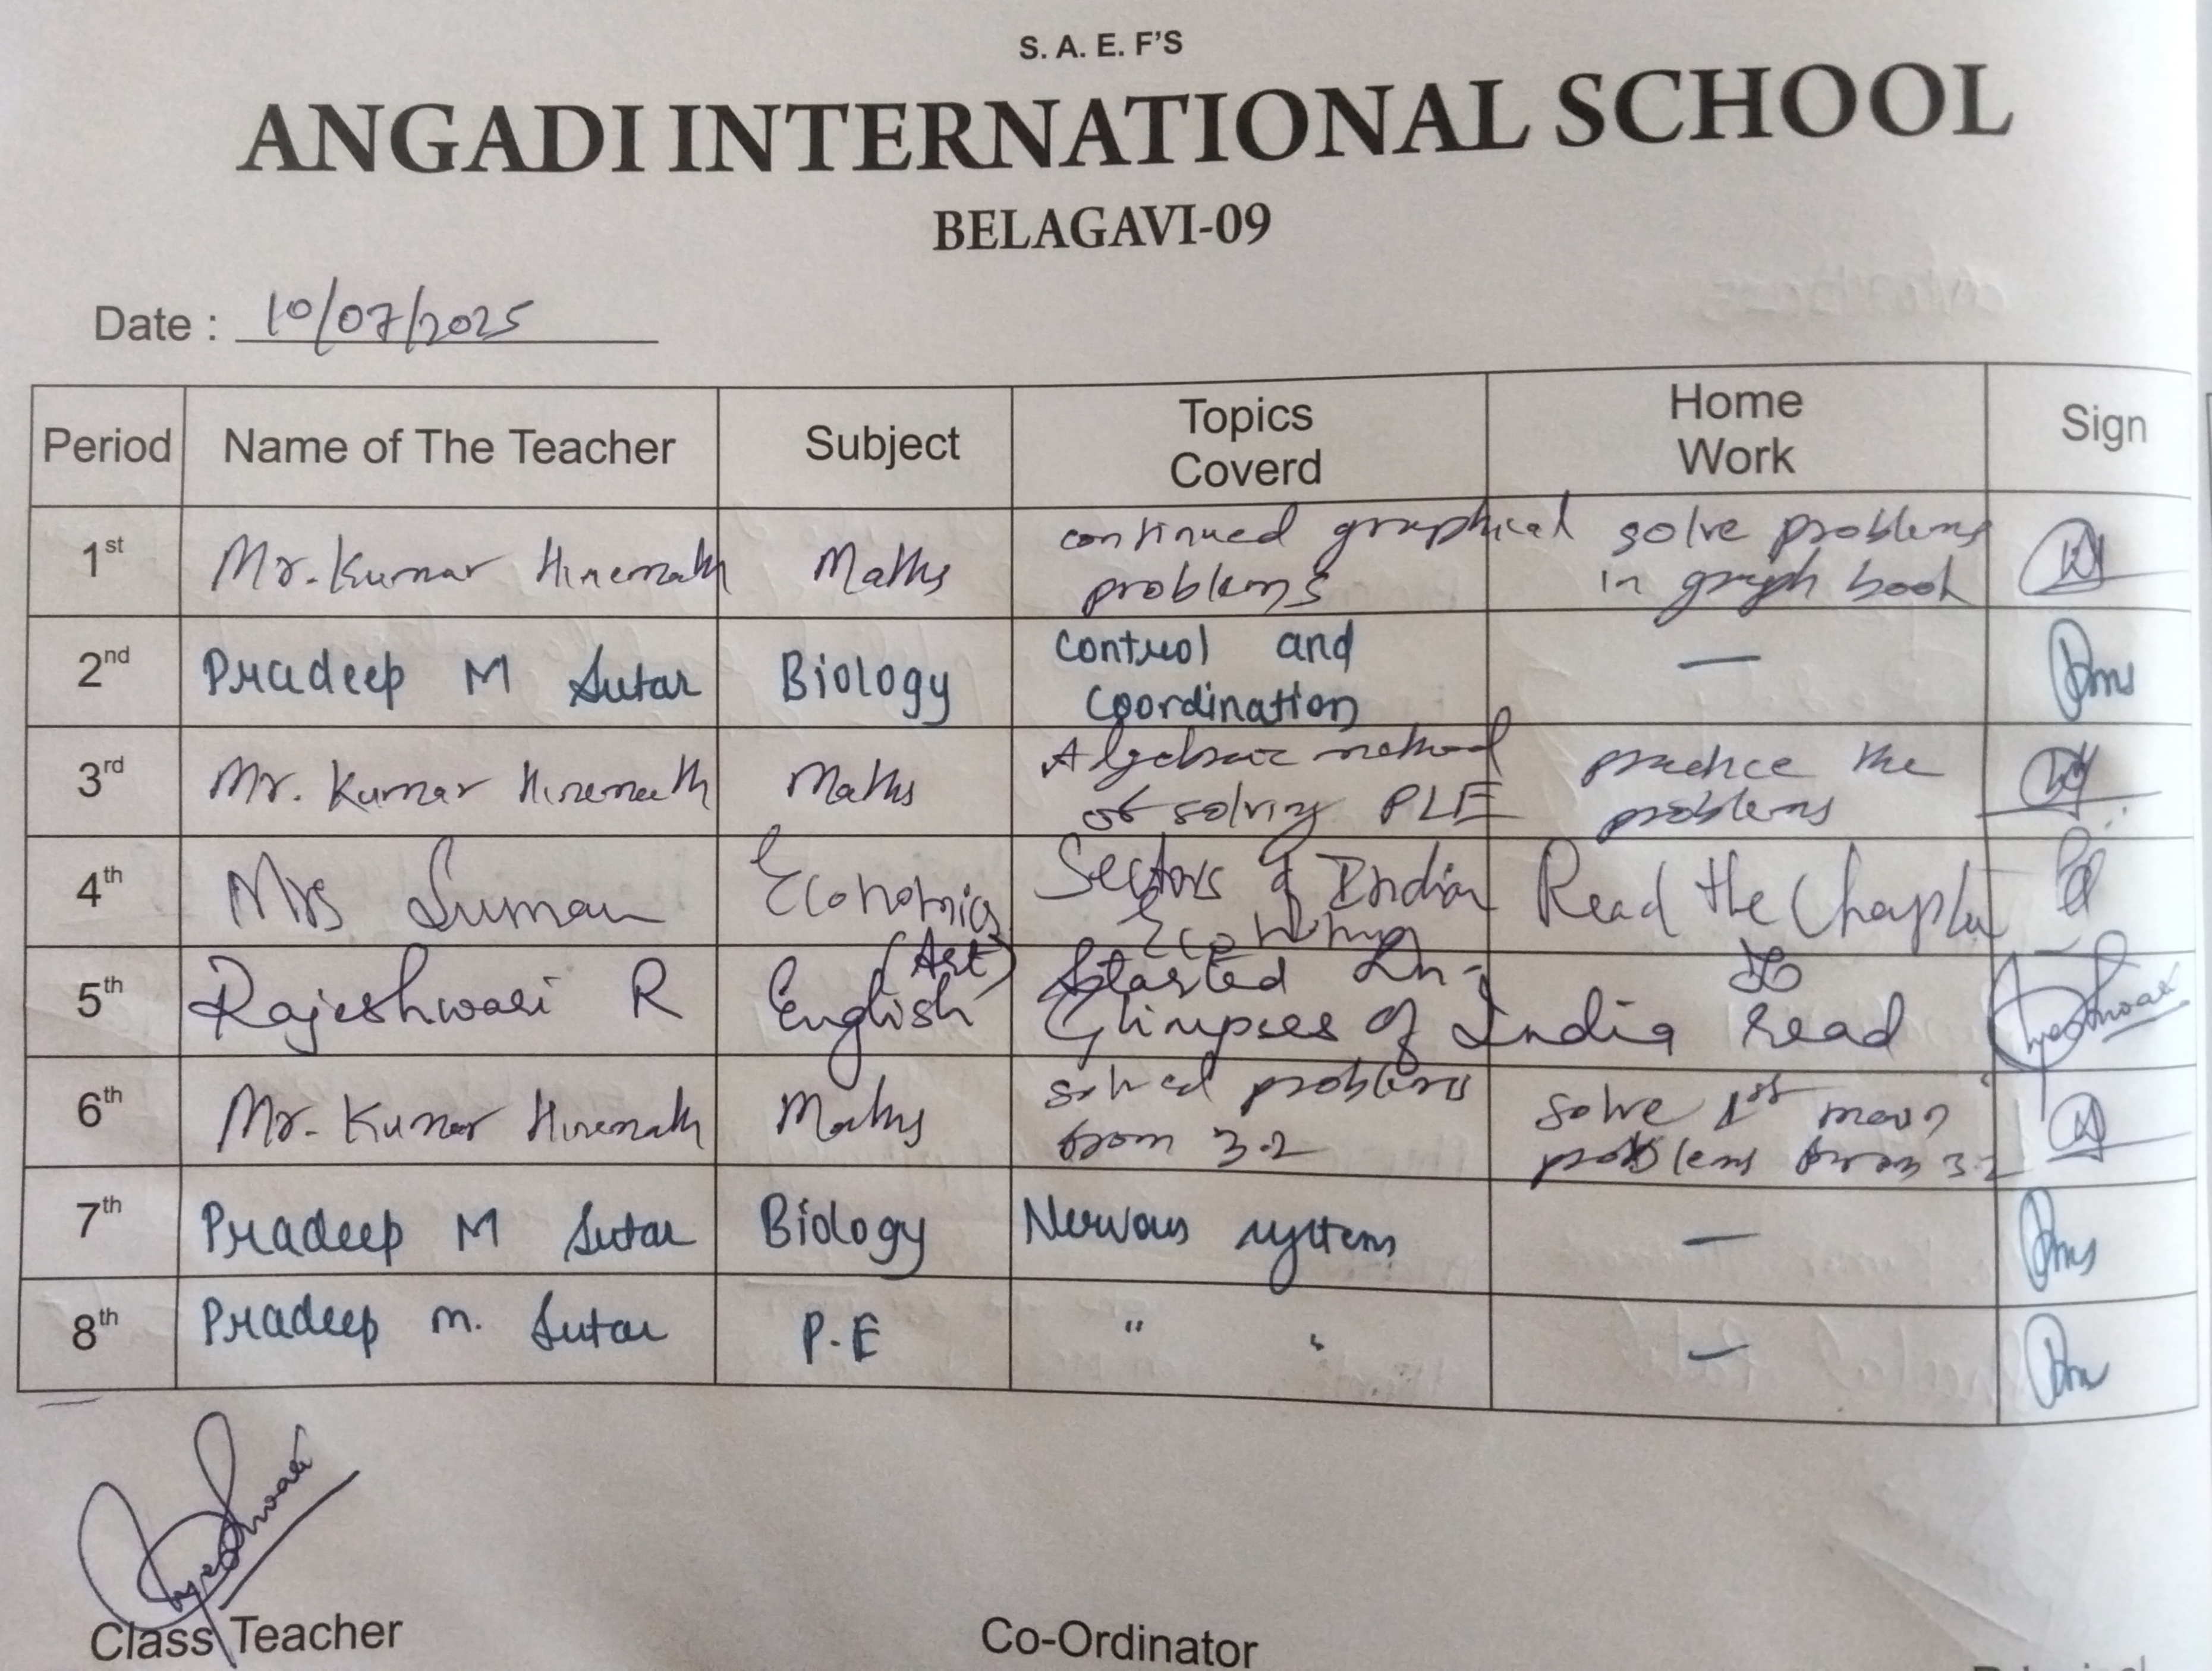 S. A. E. F'S
ANGADI INTERNATIONAL SCHOOL
BELAGAVI-09
Date : 10/07/2025
Period Name of The Teacher Subject Topics Coverd Home Work Sign
1st Mr. Kumar Hiremath Maths continued graphical problems solve problems in graph book
2nd Pradeep M Sutar Biology Control and Coordination —
3rd Mr. Kumar Hiremath Maths Algebraic method of solving PLE practice the problems
4th Mrs Suman Economics Sectors of Indian Economy Read the Chapter
5th Rajeshwari R English (Art) Started Ln- Glimpses of India To read
6th Mr. Kumar Hiremath Maths solved problems from 3.2 solve 1st main problems from 3.2
7th Pradeep M Sutar Biology Nervous system —
8th Pradeep m. Sutar P.E " —
Class Teacher Co-Ordinator